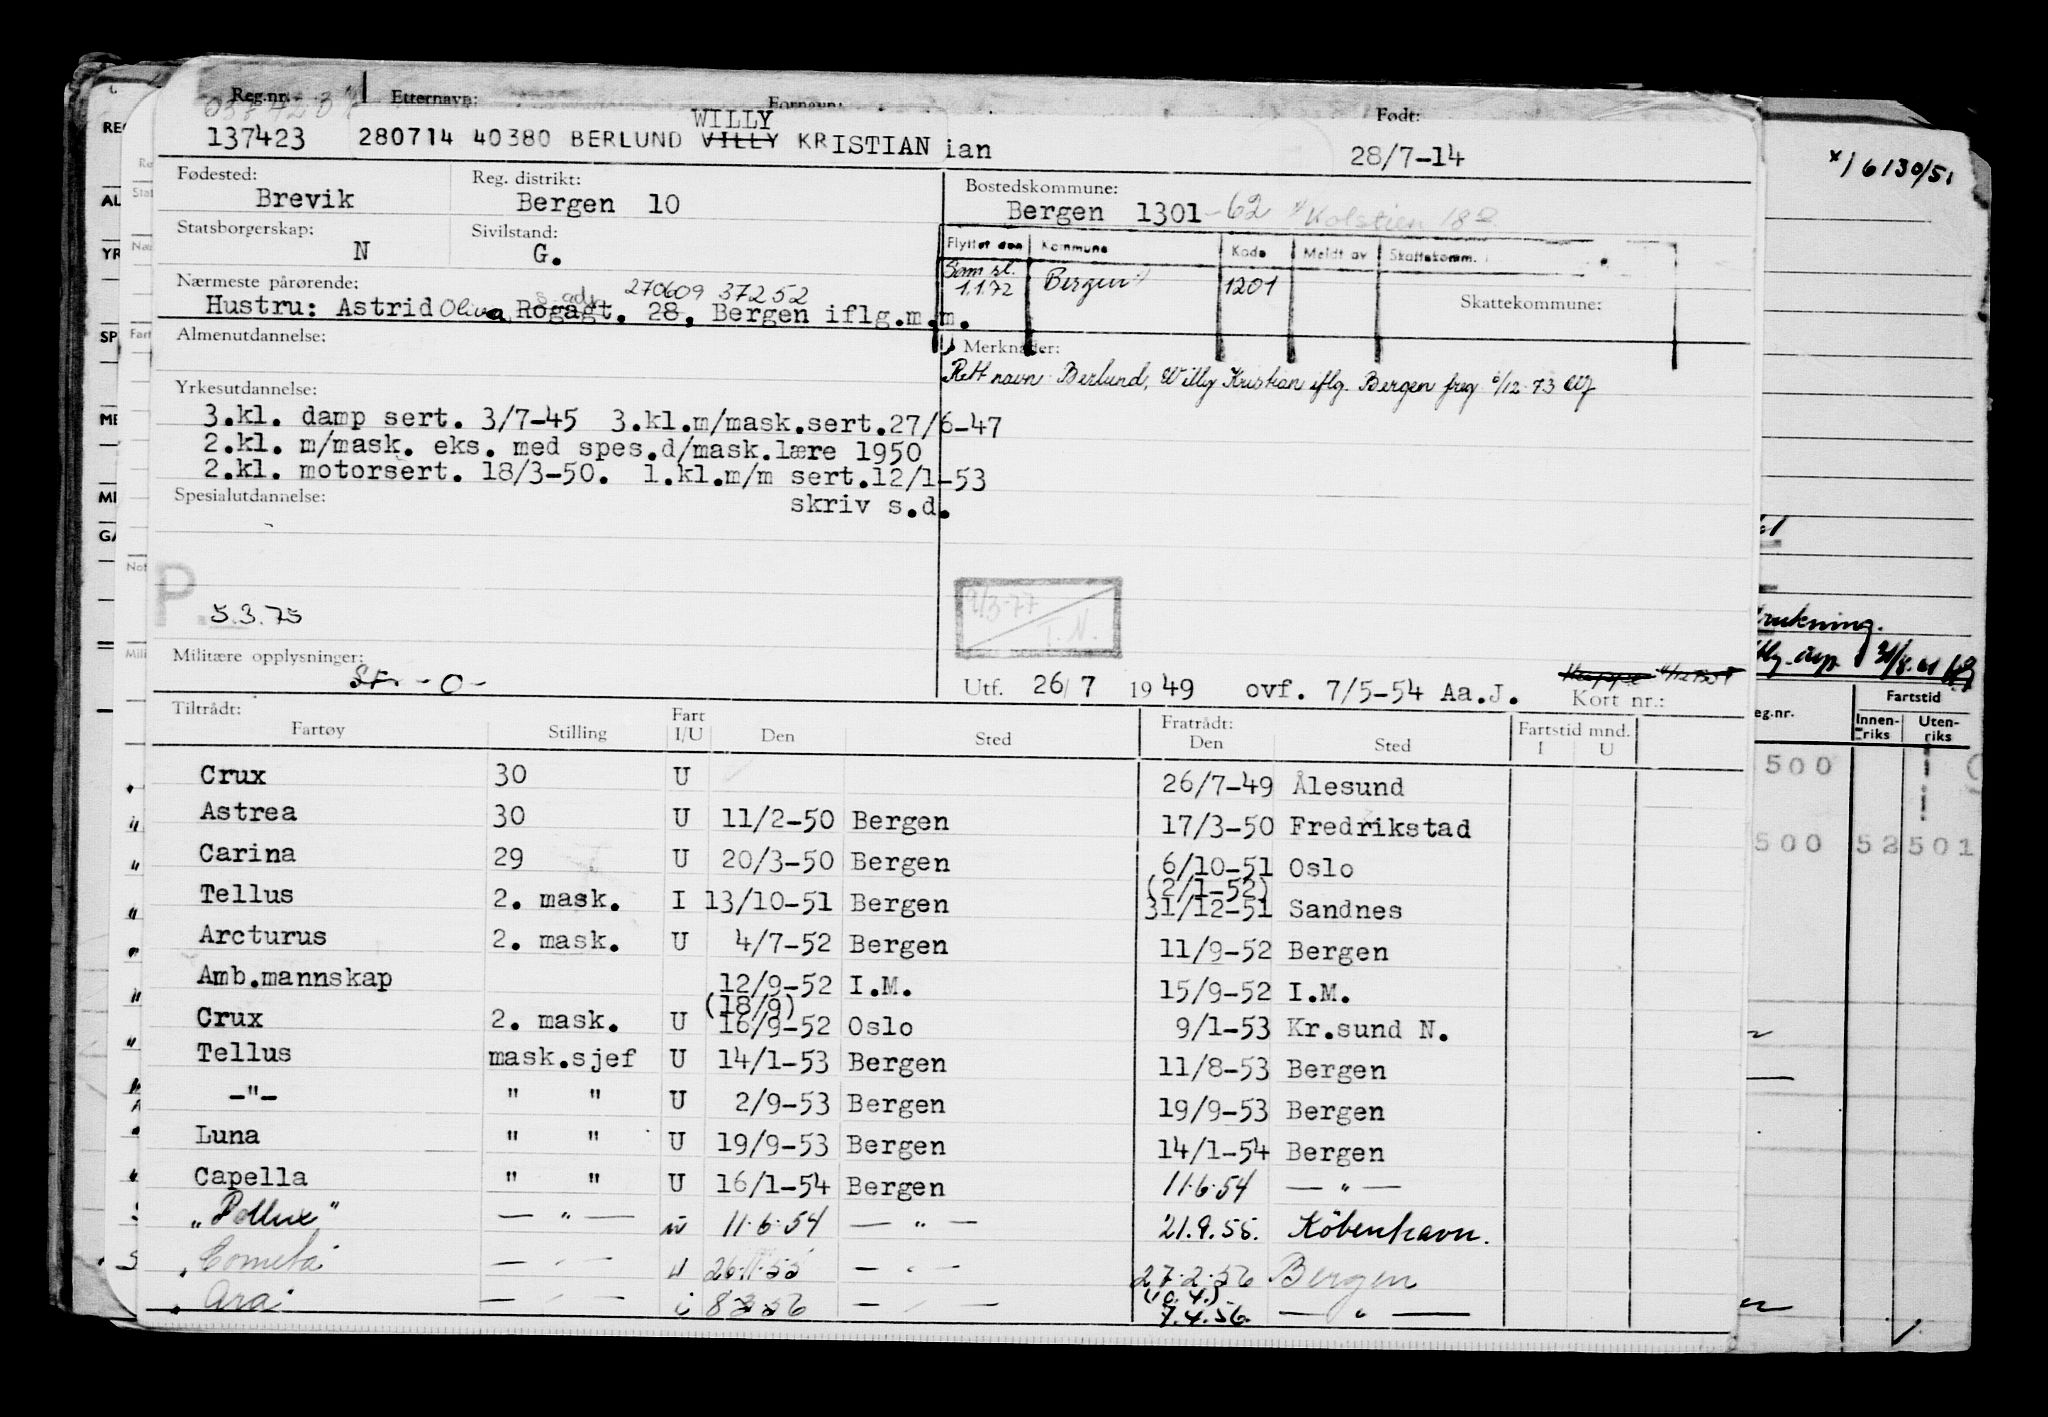 Reg.nr. Etternavn: Fornavn: Født:
WILLY
137423 280714 40380 BERLUND VILLY KRISTIAN ian 28/7-14
*/ 6130/51
Fødested: Reg. distrikt: Bostedskommune:
Brevik Bergen 10 Bergen 1301 -62 Kolstien 18
Statsborgerskap: Sivilstand:
N G.
Flyttet den Kommune Kode Meldt av Skattekomm.
Som sl. 1.1.72 Bergen 1201
Skattekommune:
Nærmeste pårørende: s. adr. 270609 37252
Hustru: Astrid Oliva Rogagt. 28, Bergen iflg.m.m.
Almenutdannelse: Merknader:
Rett navn Berlund, Willy Kristian iflg. Bergen freg /12-73
Yrkesutdannelse:
3.kl. damp sert. 3/7-45 3.kl.m/mask.sert.27/6-47
2.kl. m/mask. eks. med spes.d/mask.lære 1950
2.kl. motorsert. 18/3-50. 1.kl.m/m sert.12/1-53
Spesialutdannelse: skriv s.d.
P. 5.3.75
9/3-77
T.N.
Militære opplysninger:
Str - 0 -
Utf. 26/7 1949 ovf. 7/5-54 Aa.J. Kort nr.:
Tiltrådt: Fratrådt:
Fartøy Stilling Fart I/U Den Sted Den Sted Fartstid mnd. I U
Crux 30 U 26/7-49 Ålesund
Astrea 30 U 11/2-50 Bergen 17/3-50 Fredrikstad
Carina 29 U 20/3-50 Bergen 6/10-51 Oslo
(2/1-52)
Tellus 2. mask. I 13/10-51 Bergen 31/12-51 Sandnes
Arcturus 2. mask. U 4/7-52 Bergen 11/9-52 Bergen
Amb.mannskap 12/9-52 I.M. 15/9-52 I.M.
(18/9)
Crux 2. mask. U 16/9-52 Oslo 9/1-53 Kr.sund N.
Tellus mask.sjef U 14/1-53 Bergen 11/8-53 Bergen
-"- " " U 2/9-53 Bergen 19/9-53 Bergen
Luna " " U 19/9-53 Bergen 14/1-54 Bergen
Capella " " U 16/1-54 Bergen 11.6.54 — " —
"Pollux" — " — u 11.6.54 — " — 21.9.55. København.
Cometa — " — u 26.11.55 — " — 27.2.56 Bergen
(10.4.)
Ara — " — i 8 3 56 — " — 7.4.56. — " —
REG
AL
YR
SP
ME
MI
GA
rukning.
31/8.61
eg.nr. Fartstid
Innen-riks Uten-riks
500
500 52 501